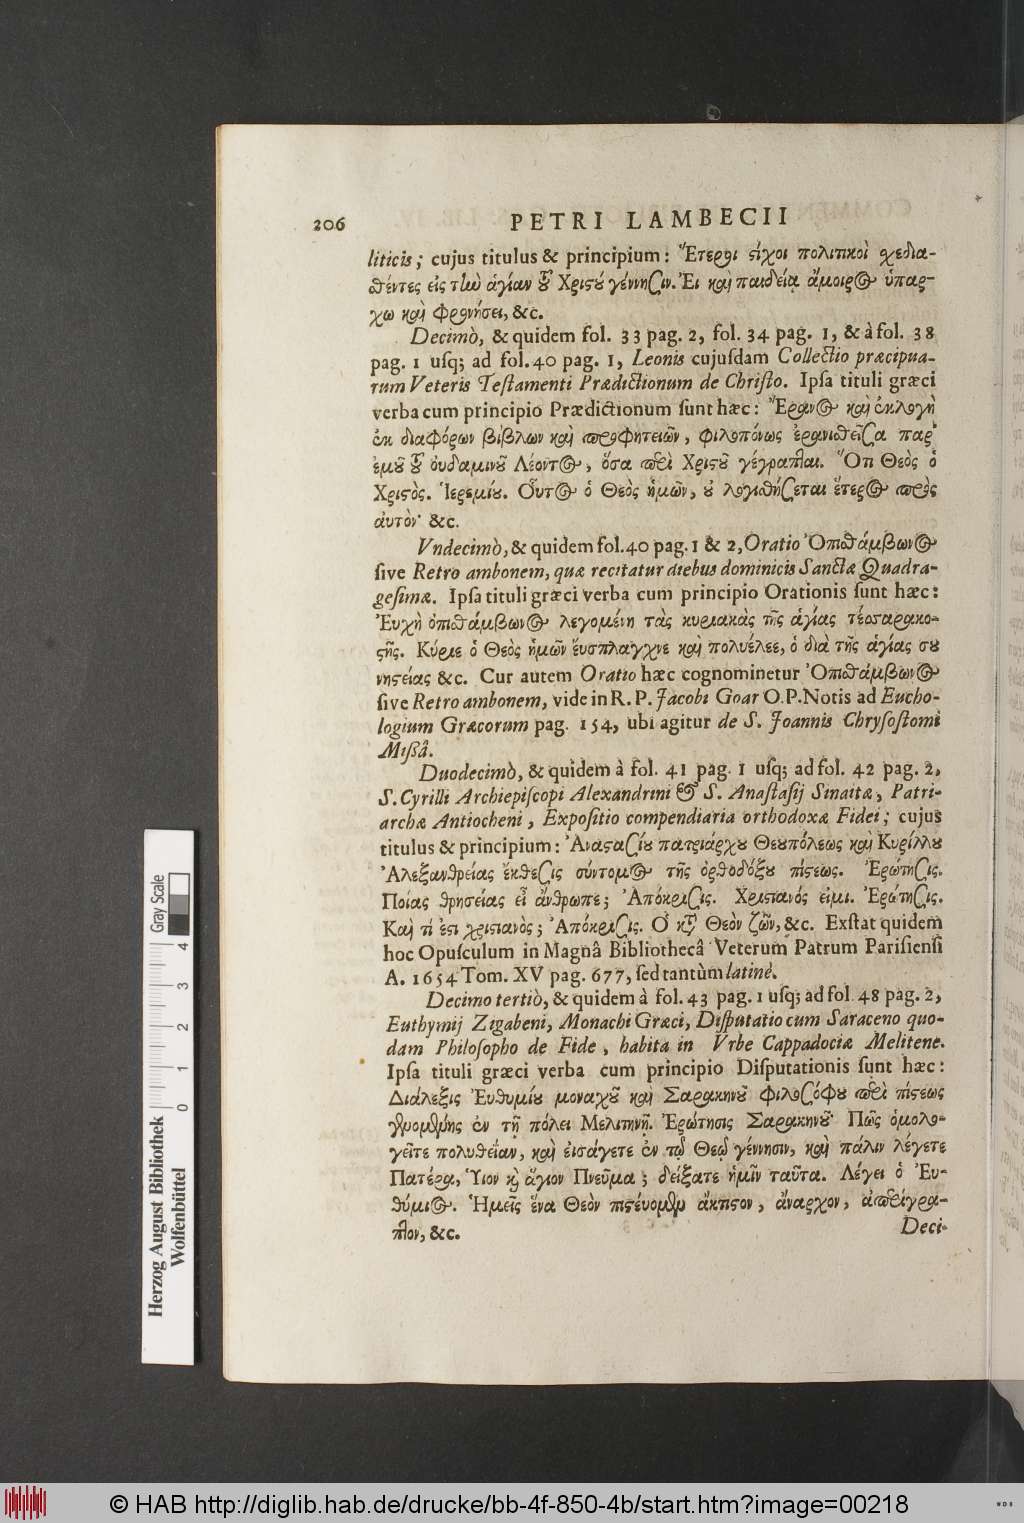 206
PETRI LAMBECII
liticis; cujus titulus & principium: Ἕτεροι ϛίχοι πολιτικοὶ σχεδια-
θέντες εἰς τὼ ἁγίαν τȣ͂ Χριϛȣ͂ γέννησιν. Εἰ καὶ παιδείᾳ ἄμοιρος ὑπάρ-
χω καὶ φρονήσει, &c.
Decimò, & quidem fol. 33 pag. 2, fol. 34 pag. 1, & à fol. 38
pag. 1 uſq; ad fol. 40 pag. 1, Leonis cujuſdam Collectio præcipua-
rum Veteris Teſtamenti Prædictionum de Chriſto. Ipſa tituli græci
verba cum principio Prædictionum ſunt hæc: Ἔρανος καὶ ἐκλογὴ
ἐκ διαφόρων βίβλων καὶ προφητειῶν, φιλοπόνως ἐρανισθεῖσα παρ'
ἐμȣ͂ τȣ͂ ȣ̓δαμινȣ͂ Λέοντος, ὅσα περὶ Χριϛȣ͂ γέγραπται. Ὅτι Θεὸς ὁ
Χριϛὸς. Ἱερεμίȣ. Οὗτος ὁ Θεὸς ἡμῶν, ȣ̓ λογισθήσεται ἕτερος πρὸς
αὐτὸν· &c.
Vndecimò, & quidem fol. 40 pag. 1 & 2, Oratio Ὀπισθάμβωνος
ſive Retro ambonem, quæ recitatur diebus dominicis Sanctæ Quadra-
geſimæ. Ipſa tituli græci verba cum principio Orationis ſunt hæc:
Εὐχὴ ὀπισθάμβωνος λεγομένη τὰς κυριακὰς τῆς ἁγίας τεσσαρακο-
ϛῆς. Κύριε ὁ Θεὸς ἡμῶν εὔσπλαγχνε καὶ πολυέλεε, ὁ διὰ τῆς ἁγίας σȣ
νηϛείας &c. Cur autem Oratio hæc cognominetur Ὀπισθάμβωνος
ſive Retro ambonem, vide in R. P. Jacobi Goar O.P. Notis ad Eucho-
logium Græcorum pag. 154, ubi agitur de S. Joannis Chryſoſtomi
Miſſâ.
Duodecimò, & quidem à fol. 41 pag. 1 uſq; ad fol. 42 pag. 2,
S. Cyrilli Archiepiſcopi Alexandrini & S. Anaſtaſij Sinaitæ, Patri-
archæ Antiocheni, Expoſitio compendiaria orthodoxæ Fidei; cujus
titulus & principium: Ἀναϛασίȣ πατριάρχȣ Θεȣπόλεως καὶ Κυρίλλȣ
Ἀλεξανδρείας ἔκθεσις σύντομος τῆς ὀρθοδόξȣ πίϛεως. Ἐρώτησις.
Ποίας θρησείας εἶ ἄνθρωπε; Ἀπόκρισις. Χριϛιανός εἰμι. Ἐρώτησις.
Καὶ τί ἐϛι χριϛιανὸς; Ἀπόκρισις. Ὁ κτ Θεὸν ζῶν, &c. Exſtat quidem
hoc Opuſculum in Magnâ Bibliothecâ Veterum Patrum Pariſienſi
A. 1654 Tom. XV pag. 677, ſed tantùm latinè.
Decimo tertiò, & quidem à fol. 43 pag. 1 uſq; ad fol 48 pag. 2,
Euthymij Zigabeni, Monachi Græci, Diſputatio cum Saraceno quo-
dam Philoſopho de Fide, habita in Vrbe Cappadociæ Melitene.
Ipſa tituli græci verba cum principio Diſputationis ſunt hæc:
Διάλεξις Εὐθυμίȣ μοναχȣ͂ καὶ Σαρακηνȣ͂ φιλοσόφȣ περὶ πίϛεως
γενομένης ἐν τῇ πόλει Μελιτηνῇ. Ἐρώτησις Σαρακηνȣ͂· Πῶς ὁμολο-
γεῖτε πολυθεΐαν, καὶ εἰσάγετε ἐν τῷ Θεῷ γέννησιν, καὶ πάλιν λέγετε
Πατέρα, Ὑιον κὶ ἅγιον Πνεῦμα; δείξατε ἡμῖν ταῦτα. Λέγει ὁ Εὐ-
θύμιος. Ἡμεῖς ἕνα Θεὸν πιϛεύομεν ἄκτιϛον, ἄναρχον, ἀπερίγρα-
πτον, &c.
Deci-
Herzog August Bibliothek
Wolfenbüttel
Gray Scale
0 1 2 3 4
© HAB http://diglib.hab.de/drucke/bb-4f-850-4b/start.htm?image=00218